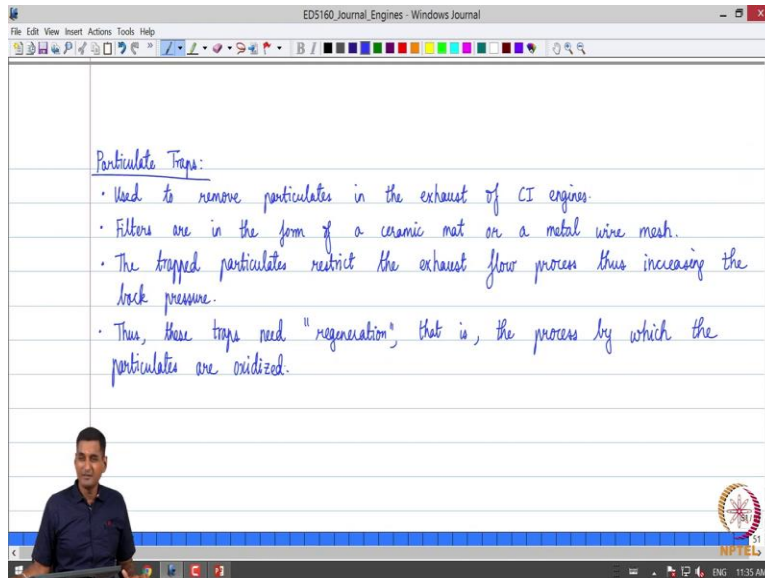 ED5160_Journal_Engines - Windows Journal
File Edit View Insert Actions Tools Help
B I
Particulate Traps:
· Used to remove particulates in the exhaust of CI engines.
· Filters are in the form of a ceramic mat or a metal wire mesh.
· The trapped particulates restrict the exhaust flow process thus increasing the
back pressure.
· Thus, these traps need "regeneration", that is, the process by which the
particulates are oxidized.
51
NPTEL
ENG 11:35 AM